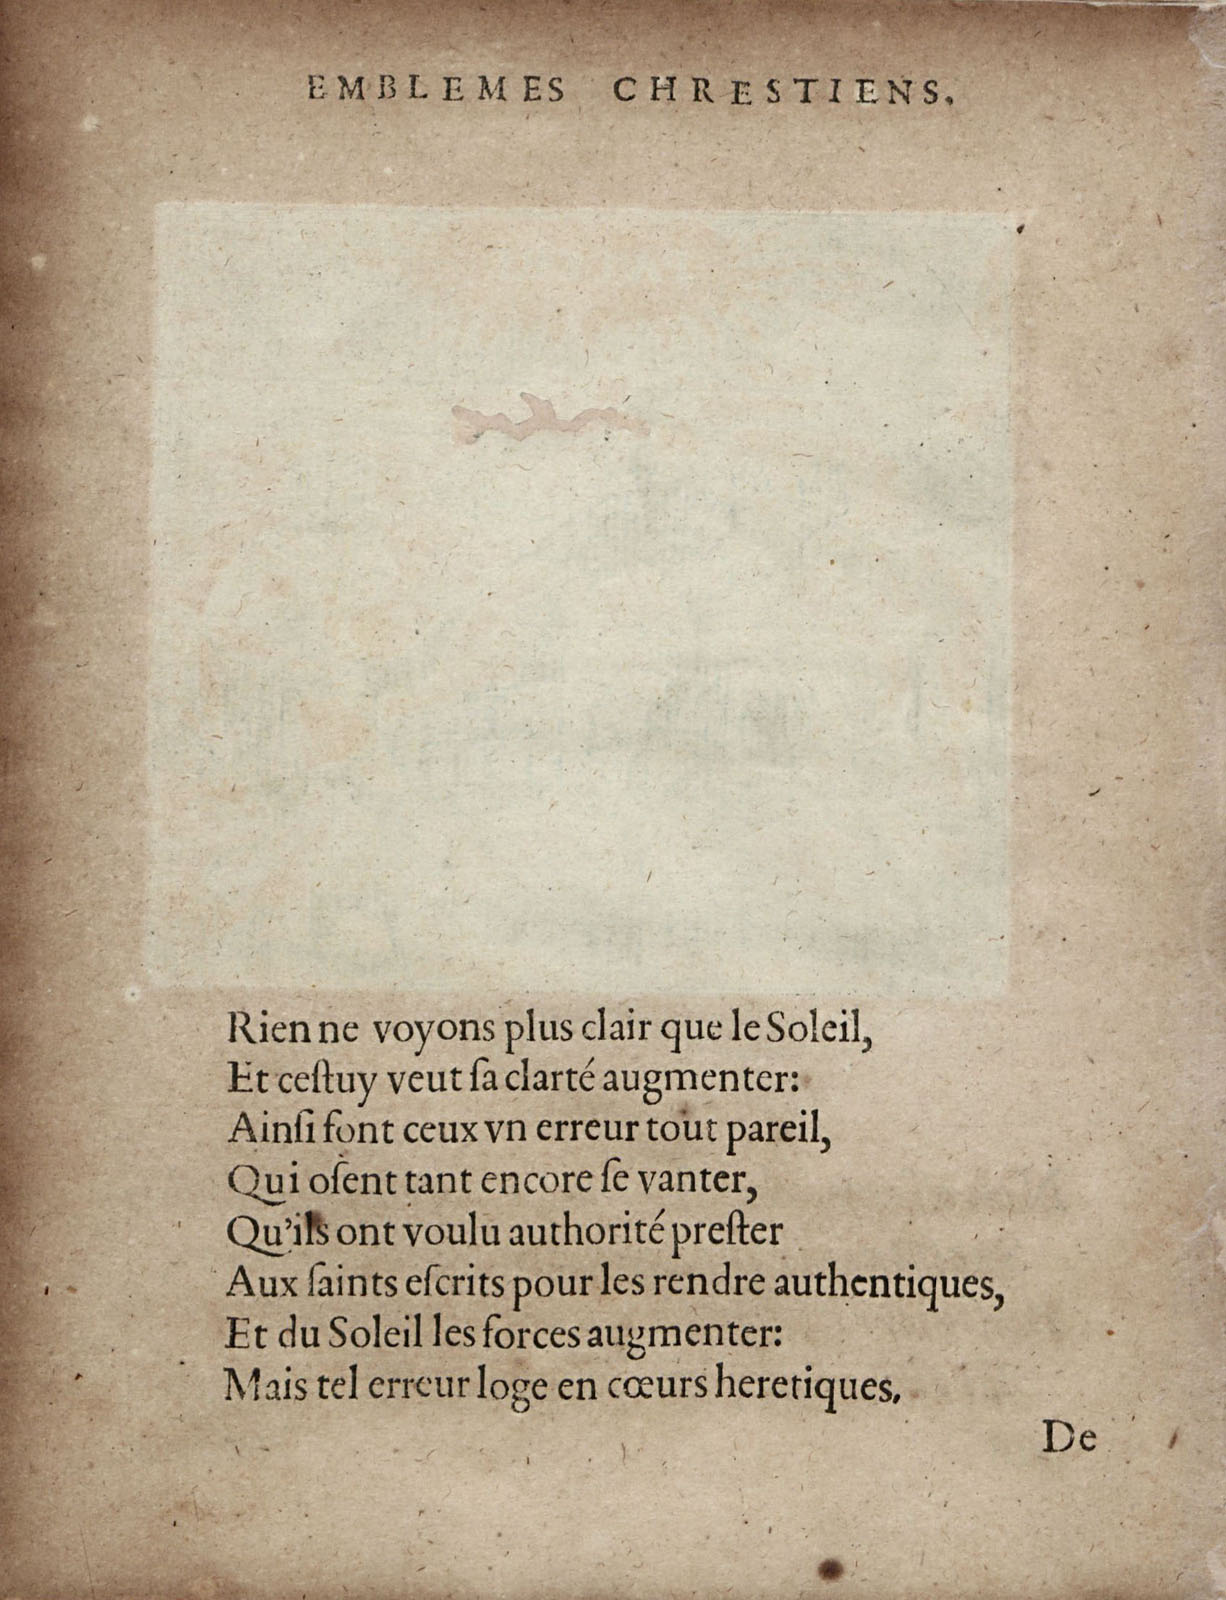 EMBLEMES CHRESTIENS.
Rien ne voyons plus clair que le Soleil,
Et ceſtuy veut ſa clarté augmenter:
Ainſi font ceux vn erreur tout pareil,
Qui oſent tant encore ſe vanter,
Qu'ils ont voulu authorité preſter
Aux ſaints eſcrits pour les rendre authentiques,
Et du Soleil les forces augmenter:
Mais tel erreur loge en cœurs heretiques.
De